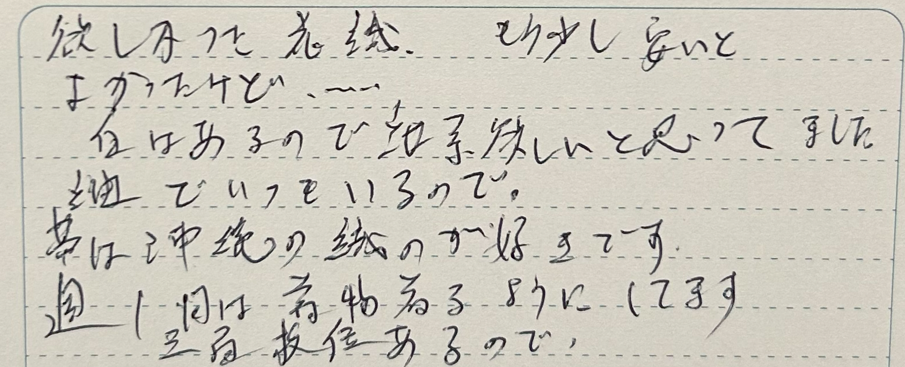 欲しかった花織. もう少し安いと
よかったけど.……
はあるので 欲しいと思ってました
紬でいつもいるので。
帯は沖縄の織のが好きです.
週1回は着物着るようにしてます
三百枚位あるので、